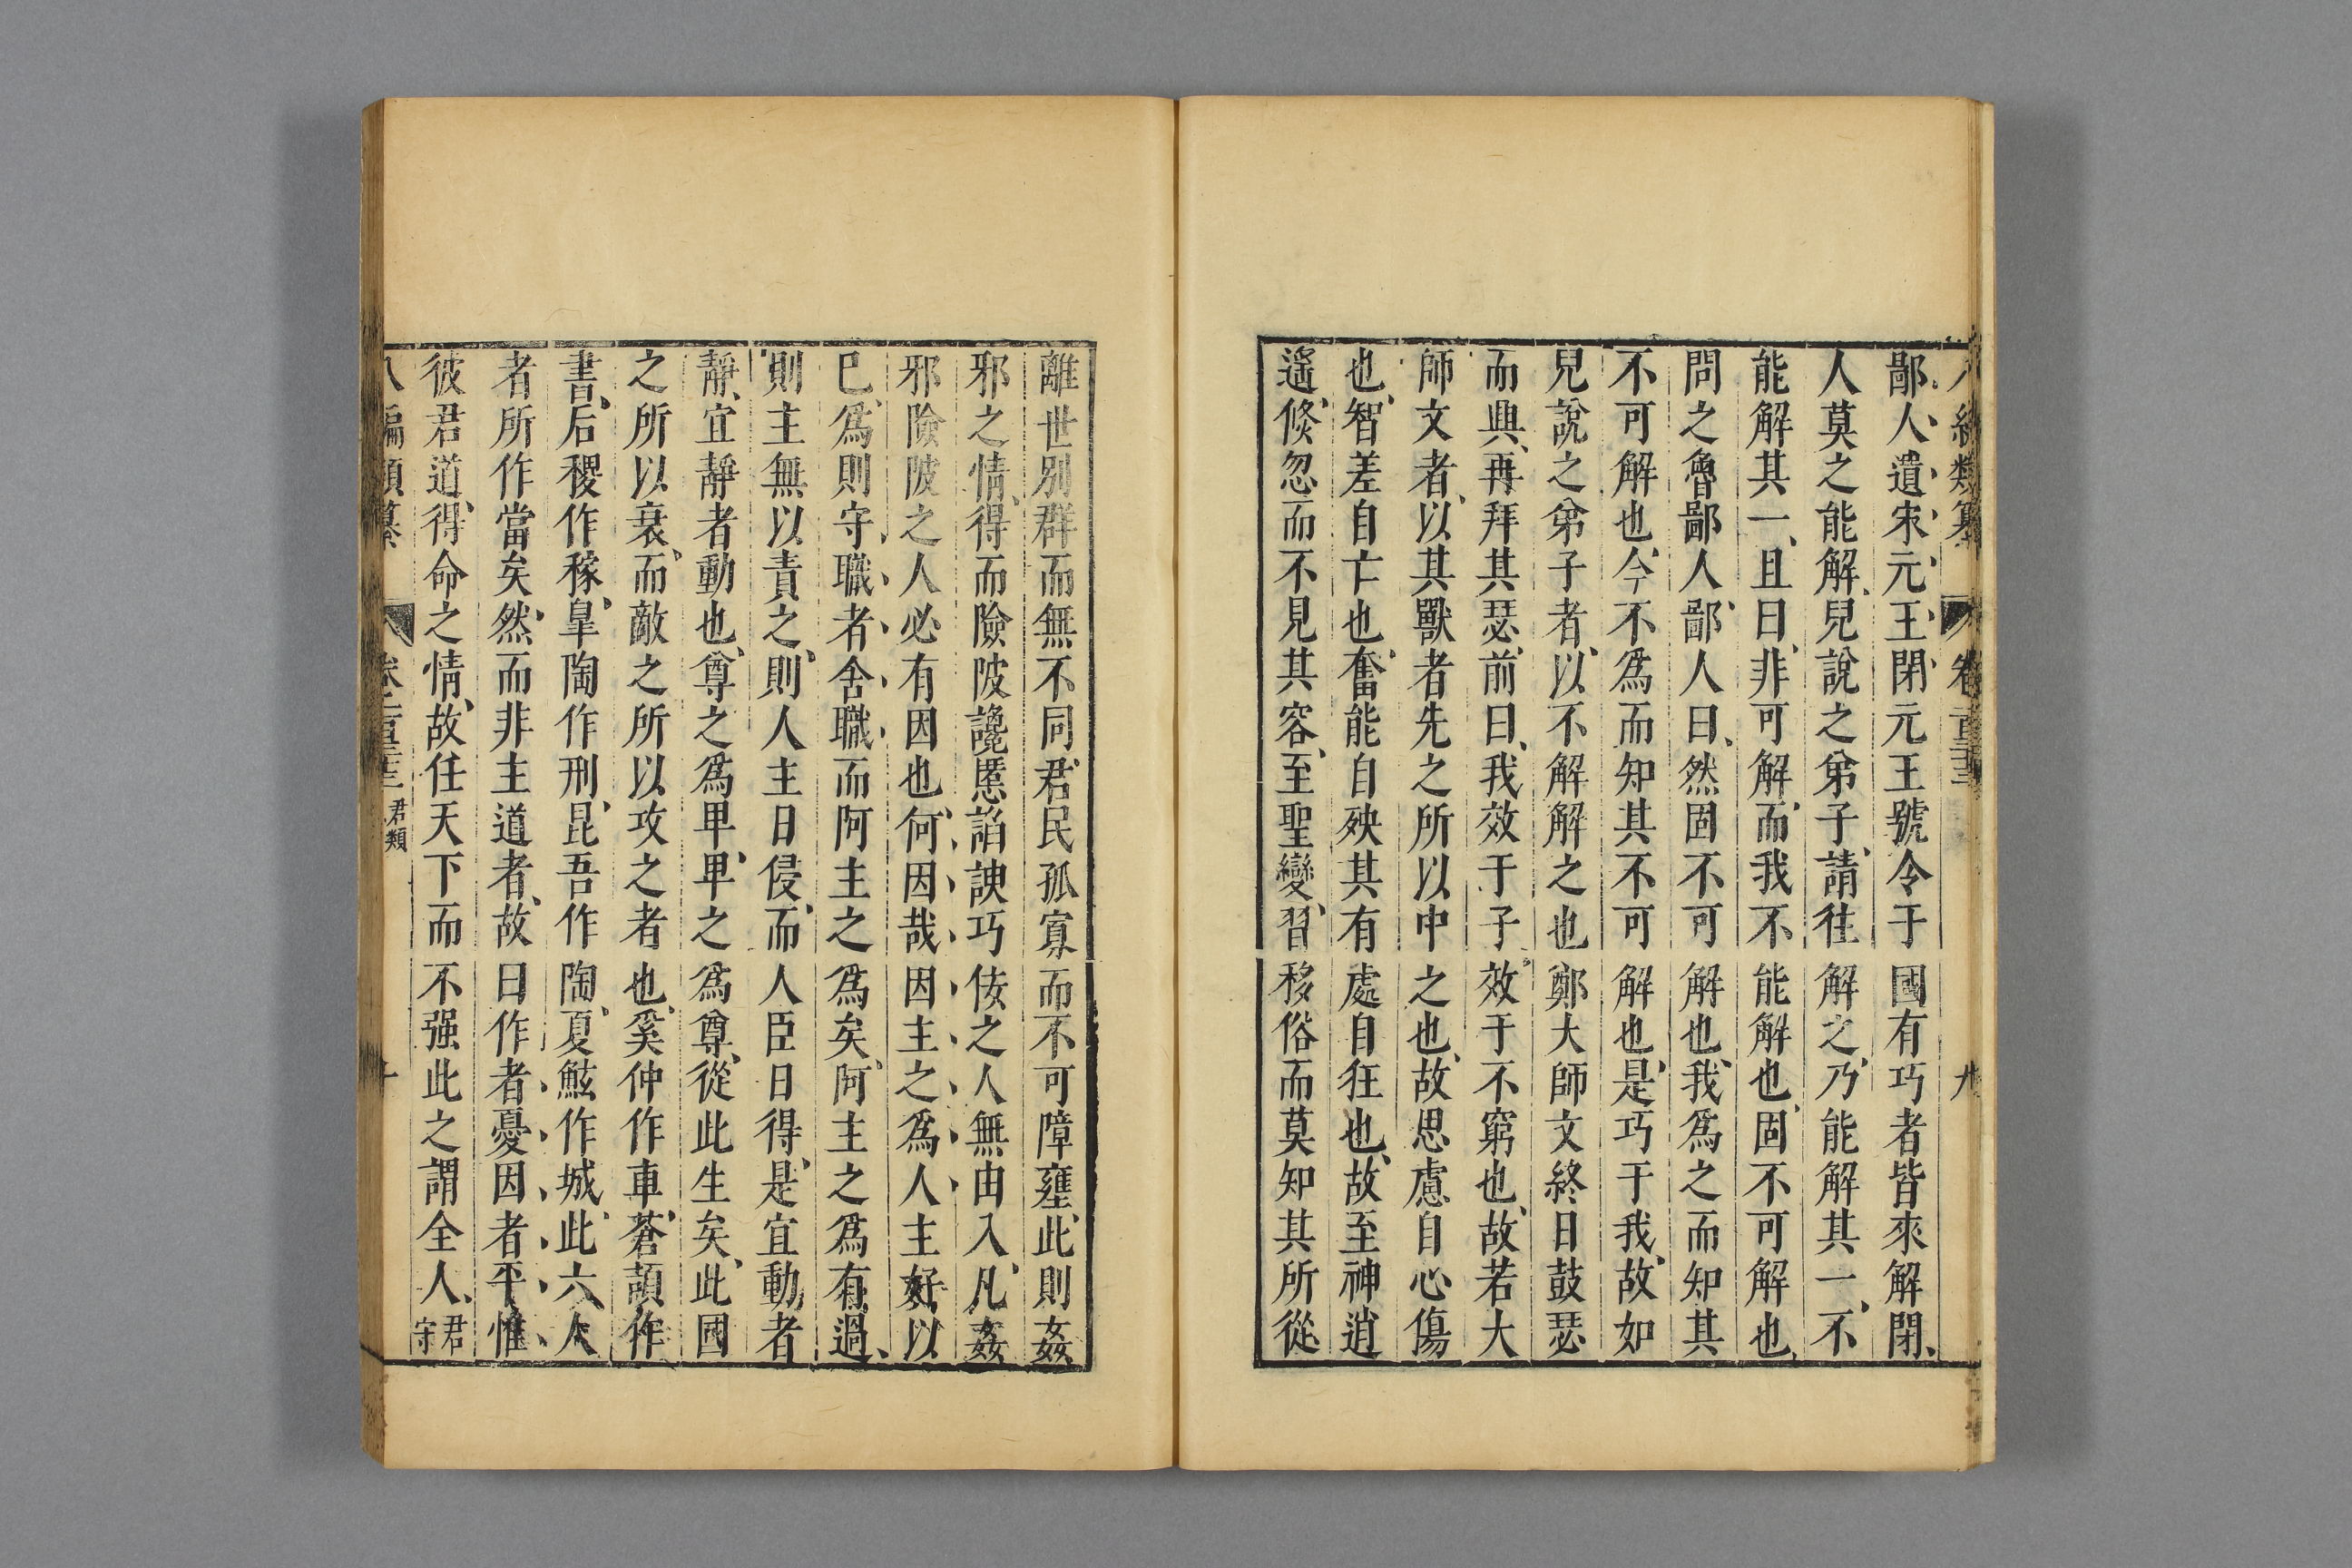 鄙人、遺宋元王閉元王號令于國有巧者皆來解閉、
人莫之能解、兒說之弟子、請往解之、乃能解其一、不
能解其一、且曰、非可解而我不能解也、固不可解也、
問之魯鄙人、鄙人曰、然固不可解也、我爲之而知其
不可解也、今不爲而知其不可解也、是巧于我、故如
兒說之弟子者、以不解解之也、鄭大師文終日鼓瑟
而興、再拜其瑟、前曰、我效于子、效于不窮也、故若大
師文者、以其獸者先之所以中之也、故思慮自心傷
也、智差自亡也、奮能自殃其有處自狂也、故至神逍
遙、倏忽而不見其容、至聖變、習移俗而莫知其所從
離世別群而無不同、君民孤寡而不可障壅、此則姦
邪之情、得而險陂讒慝諂諛巧佞之人無由入、凡姦
邪險陂之人必有因也、何因哉、因主之爲人主好以
已、爲則守職者、舍職而阿主之爲矣、阿主之爲有過、
則主無以責之、則人主日侵、而人臣日得、是宜動者
靜、宜靜者動也、尊之爲卑、卑之爲尊、從此生矣、此國
之所以衰、而敵之所以攻之者也、奚仲作車、蒼頡作
書、后稷作稼、皐陶作刑、昆吾作陶、夏鮌作城、此六人
者所作當矣、然而非主道者、故曰作者憂因者平、惟
彼君道、得命之情、故任天下而不强此之謂全人、君守
八編類纂 君類